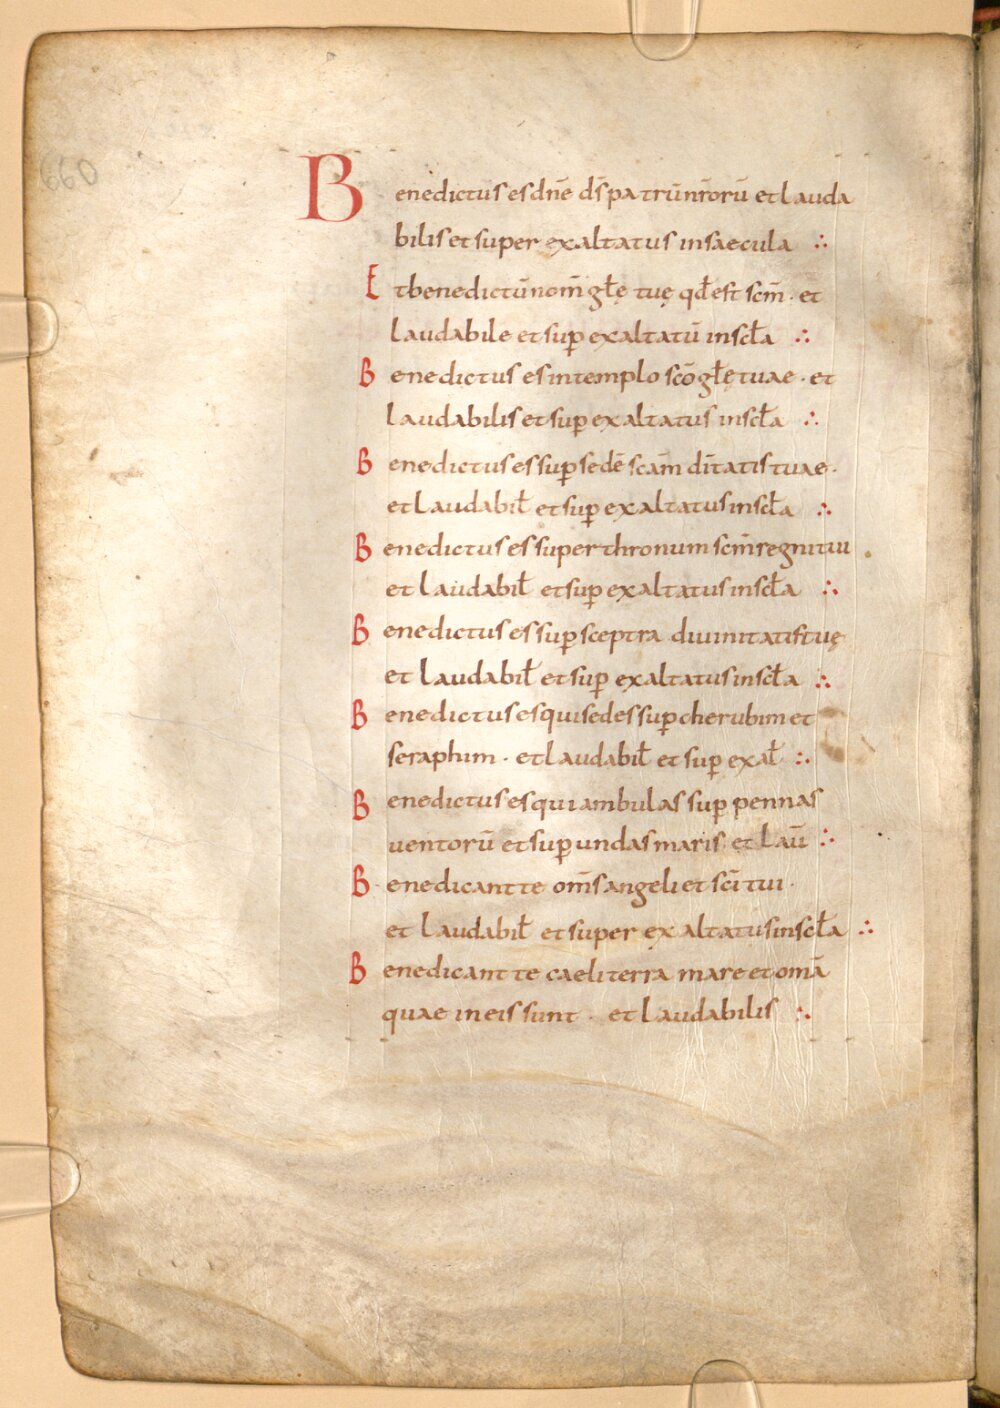 Benedictus es dn̄e ds̄ patrūnr̄orū et lauda
bilis et super exaltatus in saecula ∴
Et benedictū nom̄ glę tuę qđ est scm̄ · et
laudabile et suꝑ exaltatū in scła ∴
Benedictus es in templo scō głę tuae · et
laudabilis et suꝑ exaltatus in scła ∴
Benedictus es suꝑ sedē scam̄ din̄tatis tuae ·
et laudabił et suꝑ exaltatus in scła ∴
Benedictus es super thronum scm̄ regni tui
et laudabił et suꝑ exaltatus in scła ∴
Benedictus es suꝑ sceptra diuinitatis tuę
et laudabił et suꝑ exaltatus in scła ∴
Benedictus es qui sedes suꝑ cherubim et
seraphim · et laudabił et suꝑ exał ∴
Benedictus es qui ambulas suꝑ pennas
uentorū et suꝑ undas maris et laū ∴
Benedicant te om̄s angeli et sc̄i tui ·
et laudabił et super exaltatus in scła ∴
Benedicant te caeli terra mare et omā
quae in eis sunt · et laudabilis ∴
660